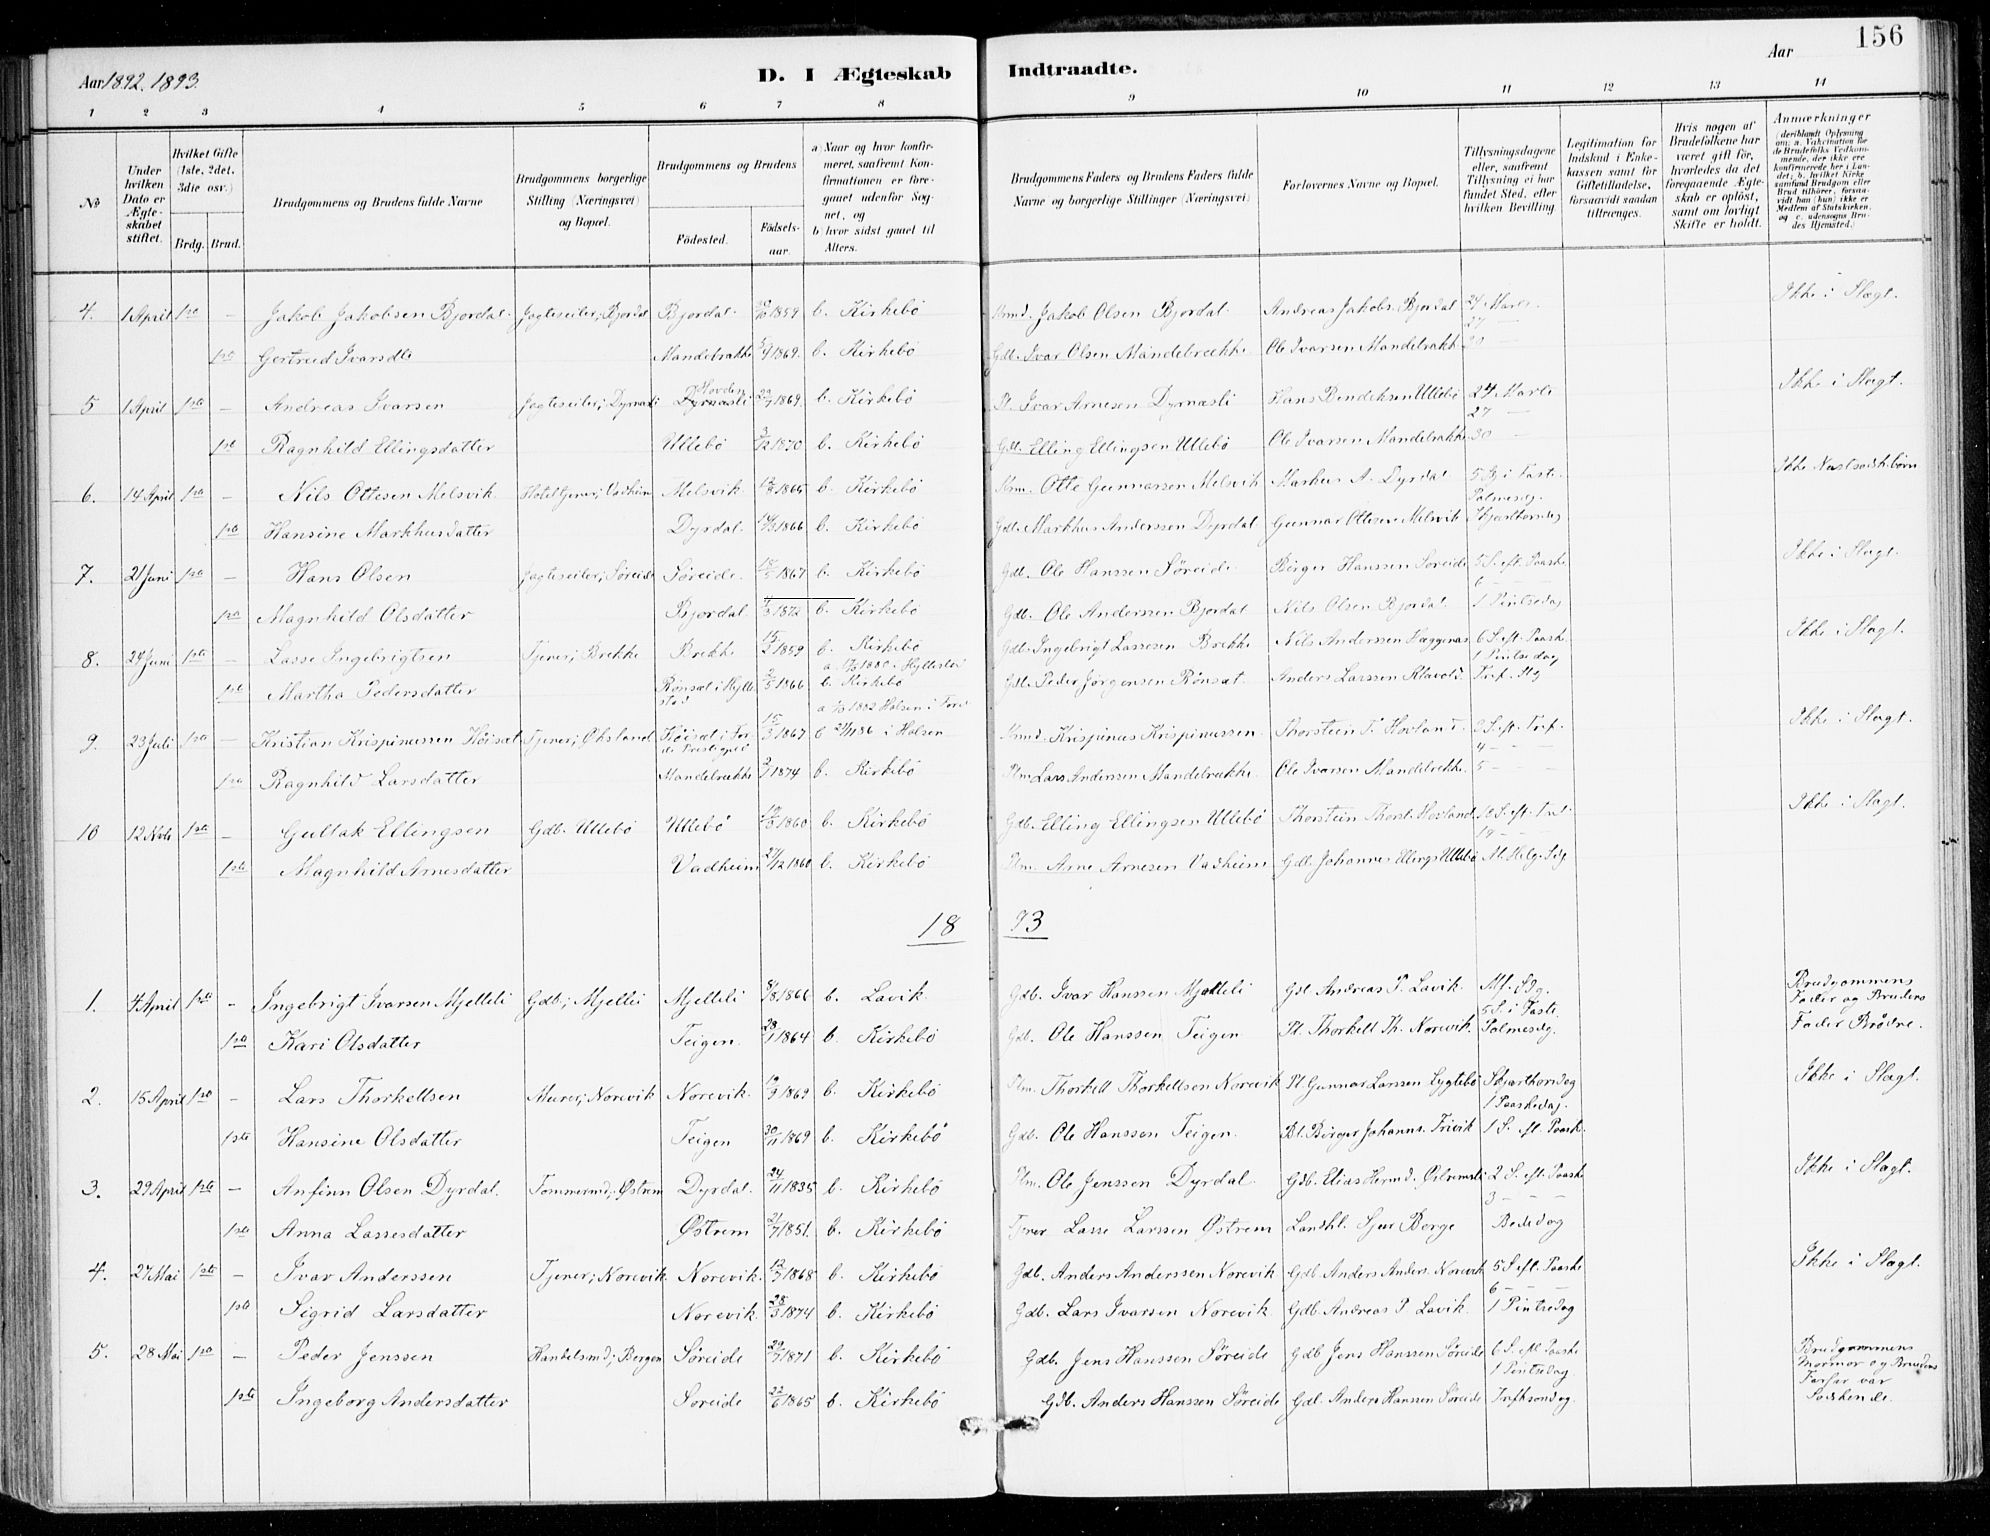 156
Aar 1892. 1893.
D. I Ægteskab Indtraadte.
Aar
1 2 3 4 5 6 7 8 9 10 11 12 13 14
No
Under hvilken Dato er Ægteskabet stiftet.
Hvilket Gifte (1ste, 2det, 3die osv.)
Brdg. Brud.
Brudgommens og Brudens fulde Navne
Brudgommens borgerlige Stilling (Næringsvei) og Bopæl.
Brudgommens og Brudens
Fødested. Fødselsaar.
a) Naar og hvor konfirmeret, saafremt Konfirmationen er foregaaet udenfor Sognet, og
b) hvor sidst gaaet til Alters.
Brudgommens Faders og Brudens Faders fulde Navne og borgerlige Stillinger (Næringsvei)
Forlovernes Navne og Bopæl.
Tillysningsdagene eller, saafremt Tillysning ei har fundet Sted, efter hvilken Bevilling
Legitimation for Indskud i Enkekassen samt for Giftetilladelse, forsaavidt saadan tiltrænges.
Hvis nogen af Brudefolkene har været gift før, hvorledes da det foregaaende Ægteskab er opløst, samt om lovligt Skifte er holdt.
Anmærkninger (deriblandt Oplysning om: a. Vakcination for de Brudefolks Vedkommende, der ikke ere konfirmerede her i Landet; b. hvilket Kirkesamfund Brudgom eller Brud tilhører, forsaavidt han (hun) ikke er Medlem af Statskirken, og c. udensogns Brudes Hjemsted.)
4. 1 April 1ste – Jakob Jakobsen Bjordal. Jagteseiler; Bjordal Bjordal. 1859 b. Kirkebö Jakob Olsen Bjordal. Andreas Jakobs. Bjordal 24 Marts 27 – Ikke i Slægt.
1ste Gertrud Ivarsdtr Mandebrække 1869. b. Kirkebö Gdb. Ivar Olsen Mandebrække Ole Ivarsen Mandebrække 30 –
5 1 April 1ste – Andreas Ivarsen Jagteseiler; Dyrnæsli Hovden Dyrnæsli 1869. b. Kirkebö Pl. Ivar Arnesen Dyrnæsli Hans Bendiksen Ullebö 24 Marts 27 – Ikke i Slægt.
1ste Ragnhild Ellingsdatter Ullebö 3/12 1870 b. Kirkebö Gdb. Elling Ellingsen Ullebö Ole Ivarsen Mandebrække 30 –
6. 14 April 1ste – Nils Ottesen Melsvik Hoteltjener; Vadheim Melsvik. 1865 b. Kirkebö Otte Gunnarsen Melsvik Markus A. Dyrdal 5 Sg i Faste Palmesdg. Ikke Næstsødsk.børn
1ste Hansine Markhusdatter Dyrdal. 1866 b. Kirkebö Gdb. Markhus Anderssen Dyrdal Gunnar Ottesen Melsvik Skjærthorsdag
7. 21 Juni 1ste – Hans Olsen Jagteseiler; Söreide Söreide. 18/5 1867 b. Kirkebö Gdb. Ole Hanssen Söreide Börger Hanssen Söreide 5 S. eft. Paaske 6 – Ikke i Slægt.
1ste Magnhild Olsdatter Bjordal. 1872 b. Kirkebö Gdb. Ole Anderssen Bjordal Nils Olsen Bjordal 1 Pintsedag
8. 24 Juni 1ste – Lasse Ingebrigtsen Tjener; Brekke Brekke 1859 b. Kirkebö Gdb. Ingebrigt Lassesen Brekke Nils Anderssen Hæggenæs 6 S. eft. Paaske. 1 Pintsedag Ikke i Slægt.
1ste Martha Pedersdatter Rönset i Hyllestad 1866 a. 1880 i Hyllestad b. Kirkebö Gdb. Peder Jörgensen Rönset. Anders Larssen Klævold Tref. Sdg
9. 23 Juli 1ste – Kristian Krispinussen Höisæt Tjener; Øksland Höisæt i Förde Prestegjeld 15/3 1867 a 1882 Holsen i Förde b 1886 i Holsen Krispinus Krispinussen Thorstein T. Hovland 3 S. eft. Tref. 4 – Ikke i Slægt.
1ste Ragnhild Larsdatter Mandebrække 1874 b. Kirkebö Plm Lars Andersen Mandebrække. Ole Ivarsen Mandebrekke. 5 –
10 12 Novb 1ste – Gullak Ellingsen Gdb. Ullebö Ullebö 1860 b. Kirkebö Gdb. Elling Ellingsen Ullebö Thorstein Thorst. Hovland 18 S. eft. Tref. 19 – Ikke i Slægt.
1ste Magnhild Arnesdatter Vadheim 27/12 1860 b. Kirkebö Plm. Arne Arnesen Vadheim Gdb. Johannes Ellings. Ullebö Al. Helg. Sdg
18 93
1. 4 April 1ste – Ingebrigt Ivarsen Mjelleli Gdb.; Mjelleli Mjelleli 8/8 1866 b. Lavik. Gdb. Ivar Hanssen Mjelleli Gdb Andreas P. Lavik. Mf. Sdg. 5 S. i Faste. Brudgommens Fader og Brudens Fader Brödre.
1ste Kari Olsdatter Teigen. 28/1 1864 b. Kirkebö Gdb. Ole Hanssen Teigen Pl. Thorkell Th. Norevik Palmesdg.
2. 15 April 1ste – Lars Thorkellsen Murer; Norevik Norevik. 19/9 1869 b. Kirkebö Plm. Thorkell Thorkellsen Norevik Pl. Gunnar Larssen Lygtebö Skjærthorsdag 1 Paaskedag. Ikke i Slægt.
1ste Hansine Olsdatter Teigen 30/11 1869 b. Kirkebö Gdb. Ole Hanssen Teigen. Bl. Börger Johanns. Trivik 1 S. eft. Paaske.
3. 29 April 1ste – Anfinn Olsen Dyrdal. Tommermd; Østrem Dyrdal. 24/11 1835 b. Kirkebö Plm. Ole Jenssen Dyrdal. Gdb. Elias Hermd. Østremsli 2 S. eft. Paaske 3 – – Ikke i Slægt.
1ste Anna Lassesdatter Østrem 21/7 1851. b. Kirkebö Tjener Lasse Larssen Østrem Landhl. Sjur Berge Bededag
4. 27 Mai 1ste – Ivar Anderssen Tjener; Norevik. Norevik. 12/7 1868 b. Kirkebö Gdb. Anders Anderssen Norevik Gdb Anders Anders. Norevik 5 S. eft. Paaske 6 – Ikke i Slægt.
1ste Sigrid Larsdatter Norevik. 28/3 1874 b. Kirkebö Gdb. Lars Ivarsen Norevik Gdb. Andreas P Lavik. 1 Pintsedag
5. 28 Mai 1ste – Peder Jenssen Handelsmd; Bergen Söreide 1871 b. Kirkebö Gdb. Jens Hanssen Söreide Gdb Jens Hanssen Söreide 6 S. eft Paaske 1 Pintsedag. Brudgommens Mormor og Brudens Farfar var Sødskende.
1ste Ingeborg Andersdatter Soreide 22/6 1865 b. Kirkebö Gdb. Anders Hanssen Söreide Gdb. Anders Hanssen Söreide Trefsondag.